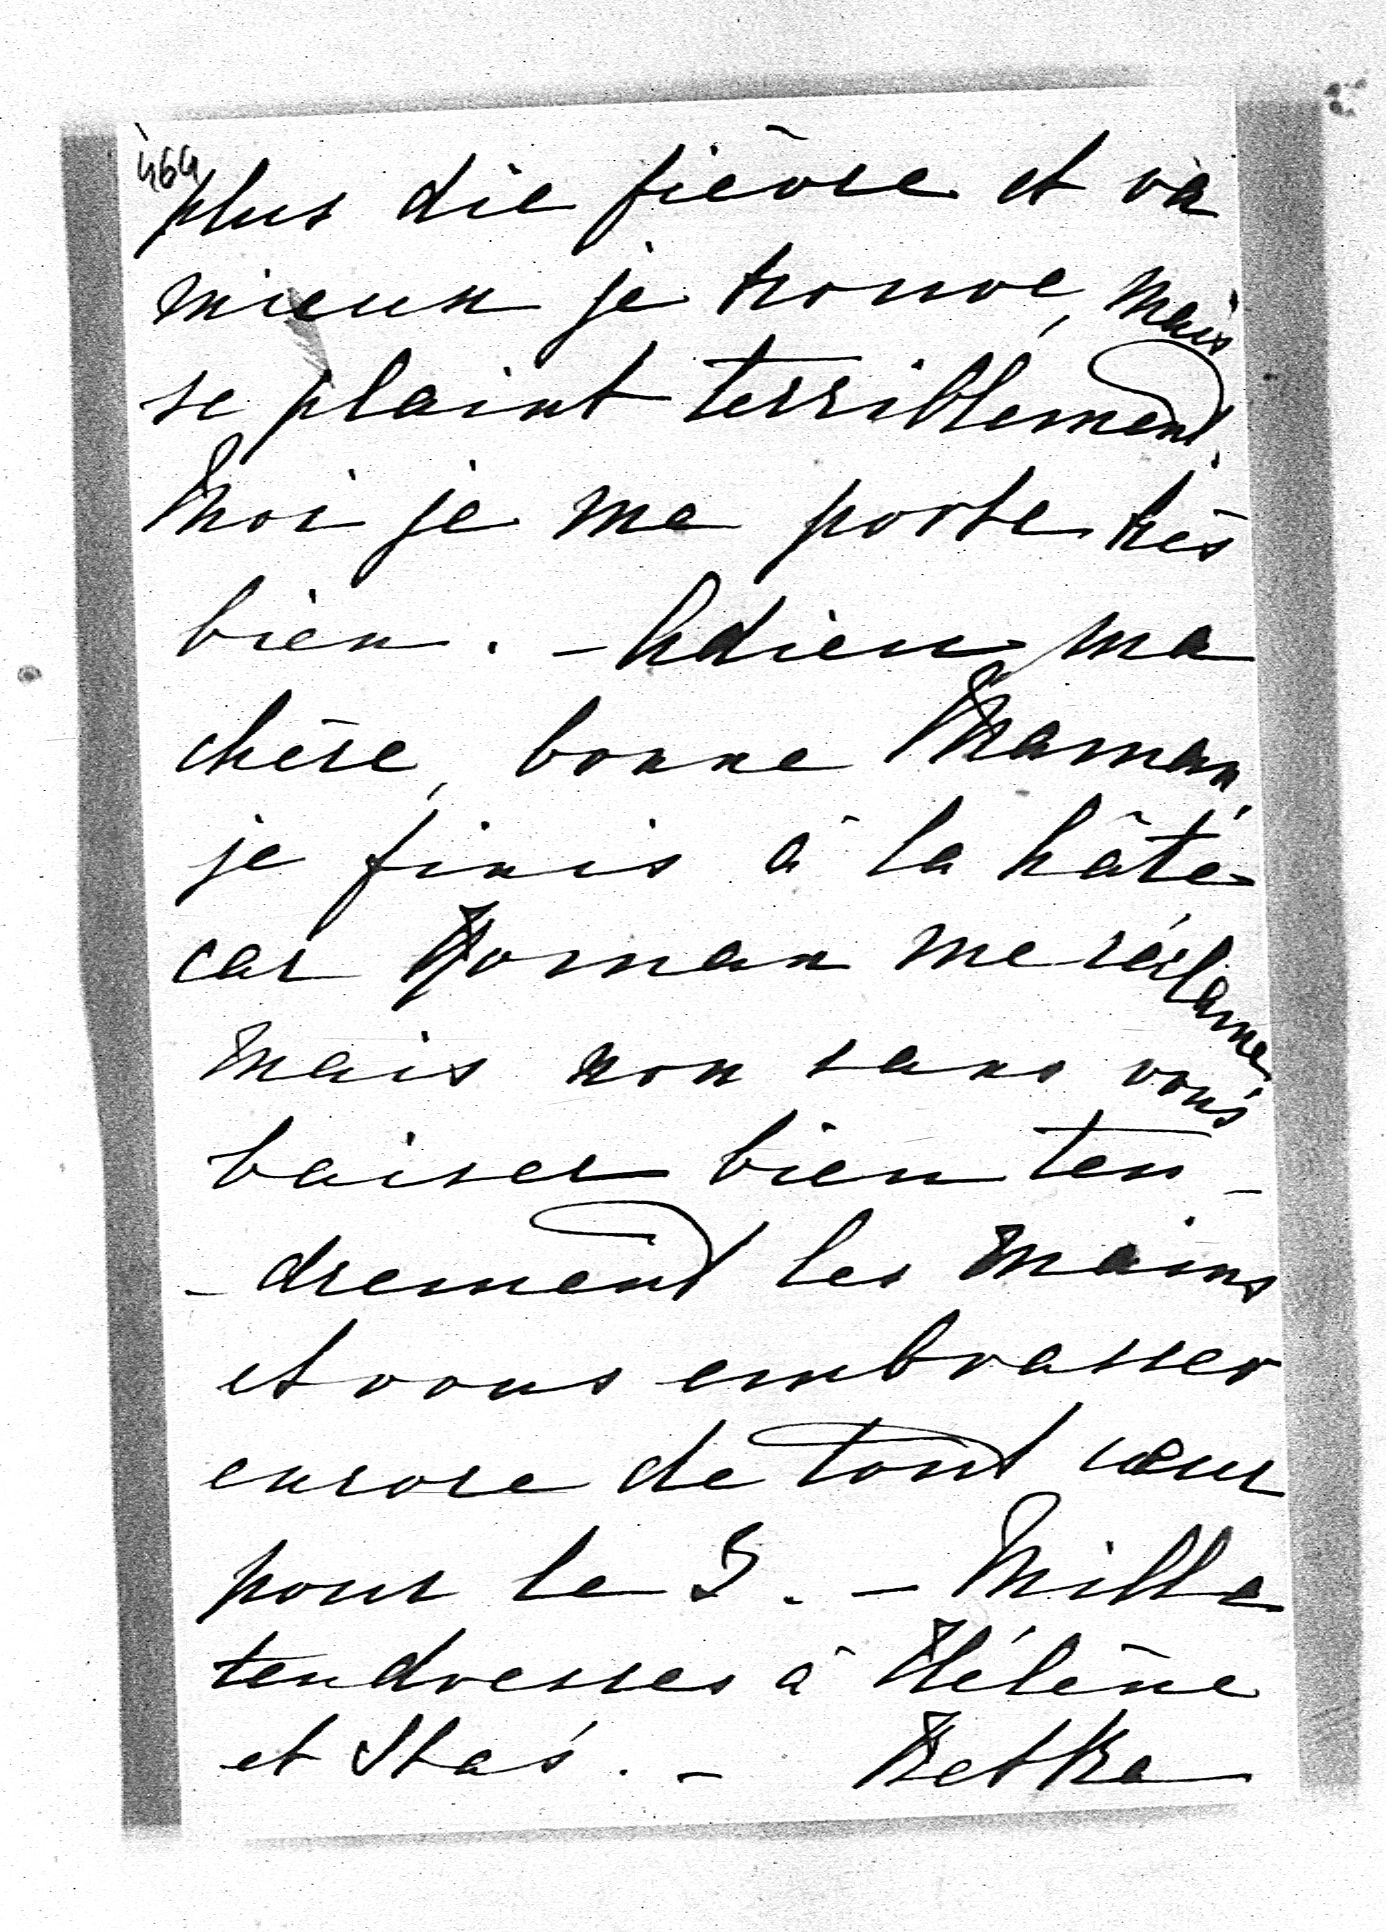 464
plus die fièvre et va
mieux je trouve, mais
se plaint terriblement.
Moi je me porte très
bien. - Adieu ma
chère, bonne Maman,
je finis à la hâte
car Roman me réclame
mais non sans vous
baiser bien ten-
-drement les mains
et vous embrasser
encore de tout cœur
pour le 3. - Mille
tendresses à Hélène
et Staś. - Retka